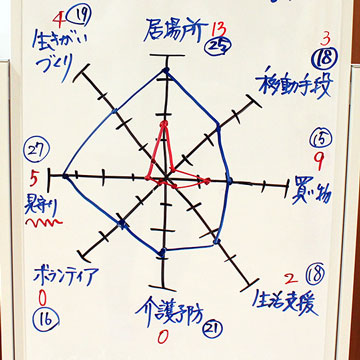 4 ⑲
生きがい
づくり
居場所 13
㉕
3
⑱
移動手段
⑮
9
買い物
2 ⑱
生活支援
介護予防
0 ㉑
ボランティア
0
⑯
㉗
5
見守り